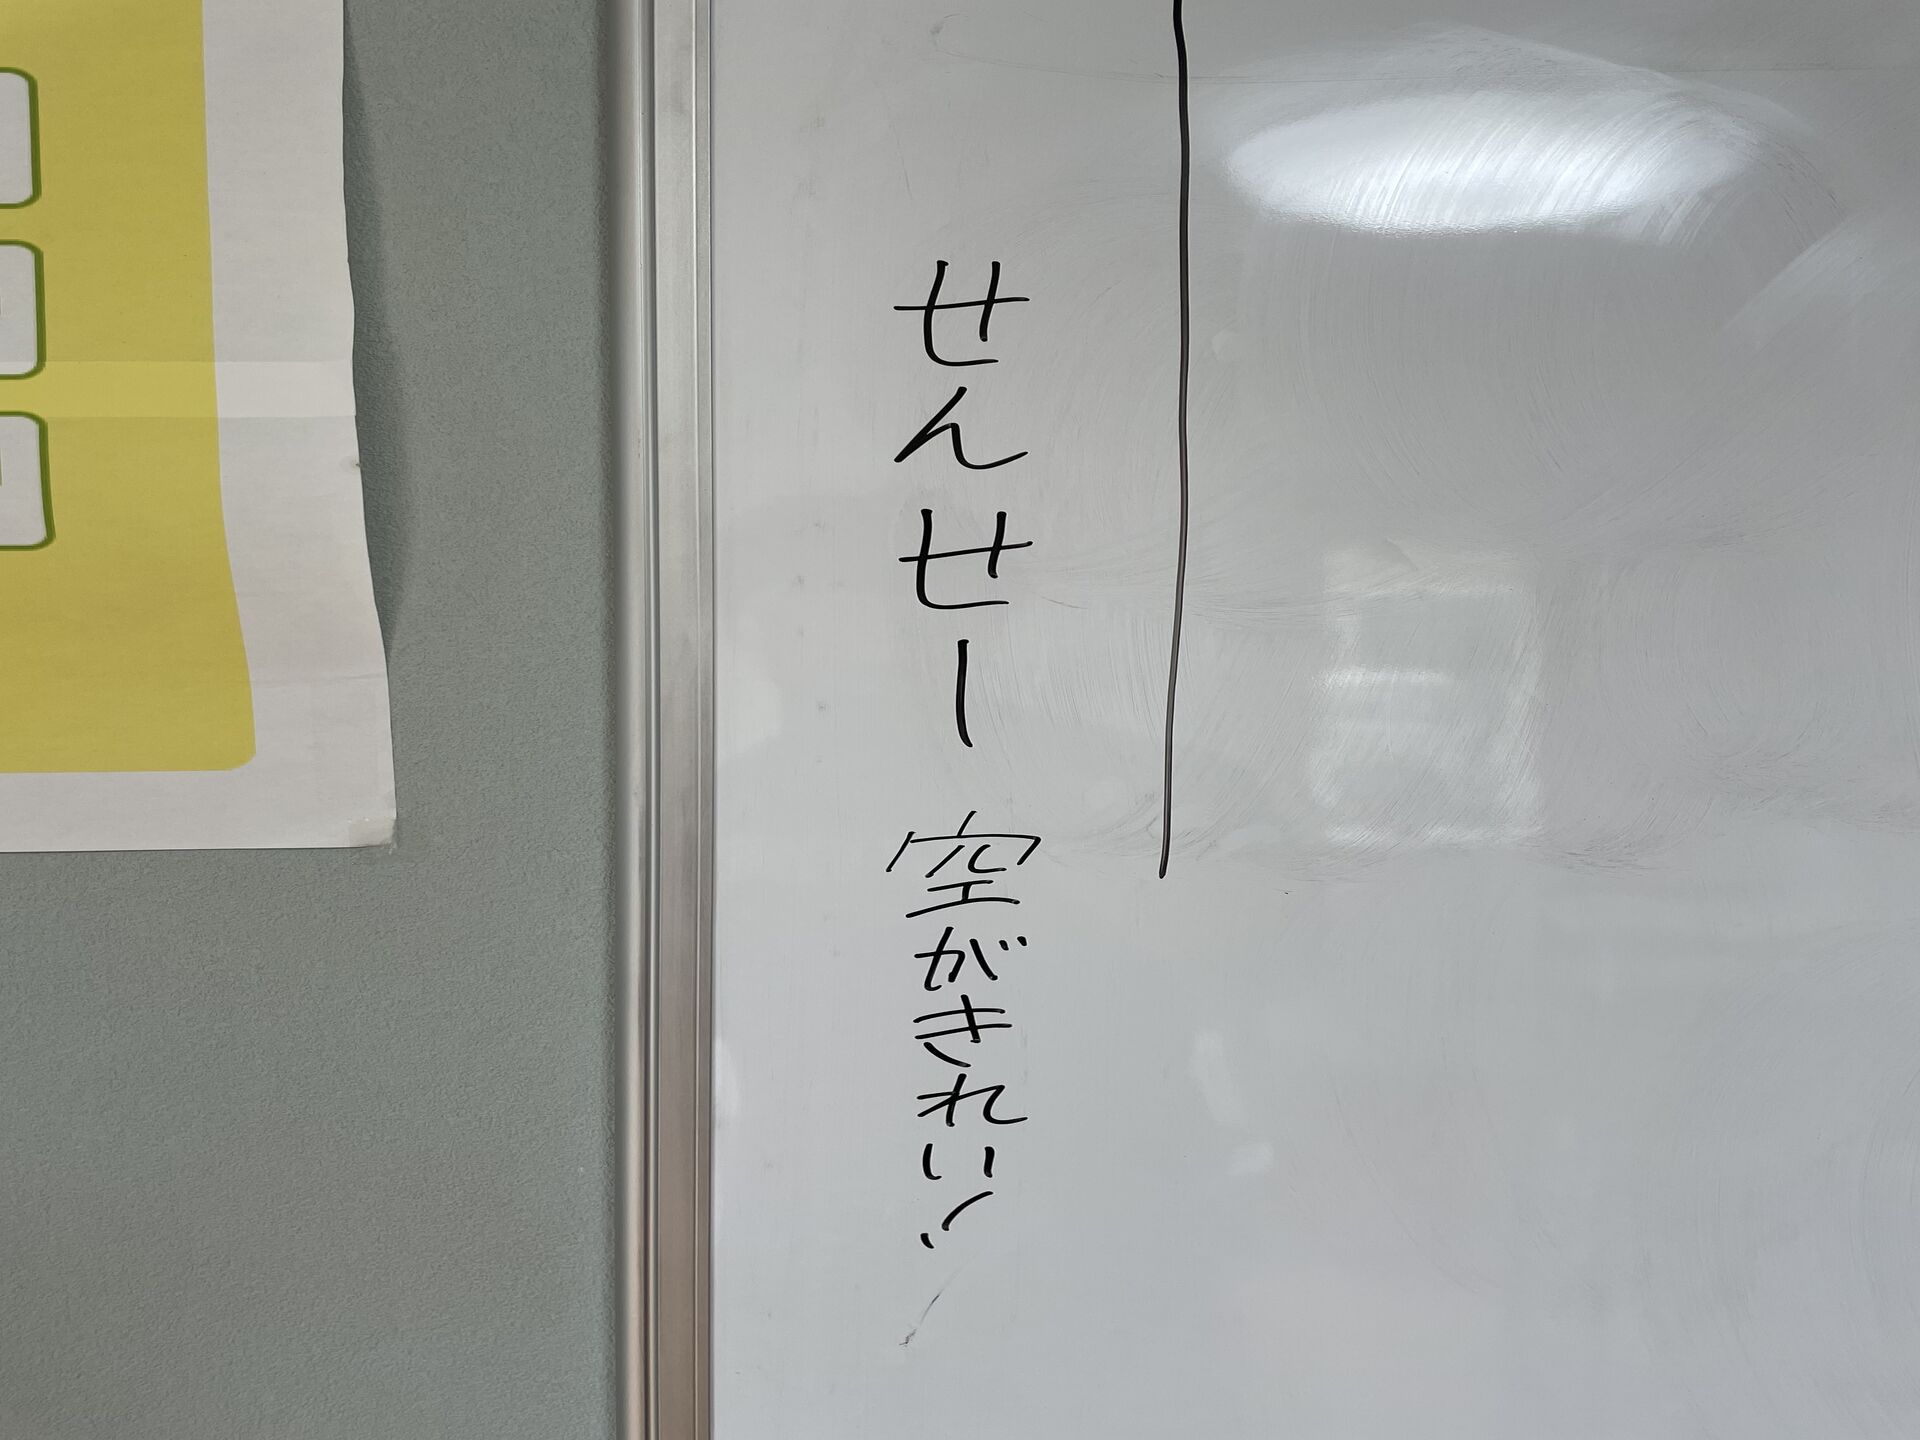 せんせー 空がきれい!